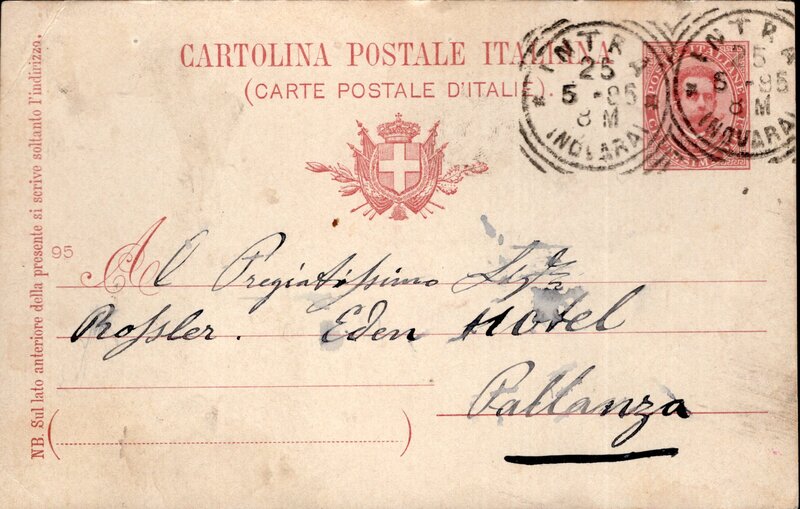 CARTOLINA POSTALE ITALIANA
(CARTE POSTALE D'ITALIE).
INTRA
25
5 -95
8 M
(NOVARA)
INTRA
25
5 -95
8 M
(NOVARA)
POSTE ITALIANE
NB. Sul lato anteriore della presente si scrive soltanto l'indirizzo.
95
Al Pregiatissimo Sigre
Rossler. Eden Hotel
Pallanza